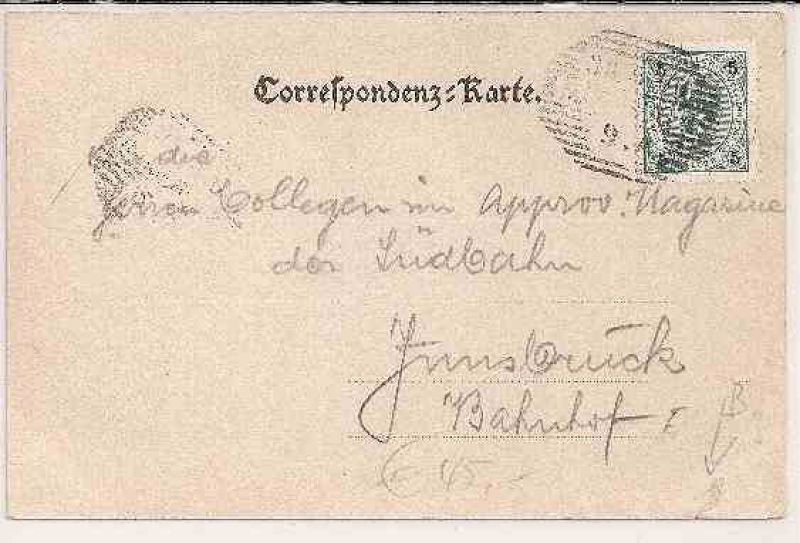 Correspondenz-Karte.
5 5
9.
die
Herren Collegen im Approv. Magazine
der Südbahn
Innsbruck
Bahnhof I
B
€ 45,-